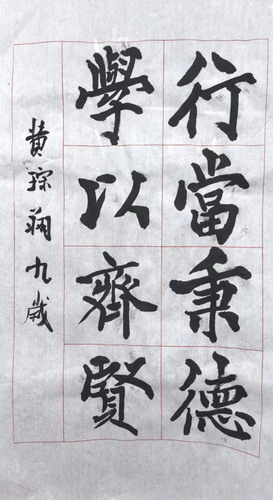 行當秉德
學以齊賢
黄琮翔九歲